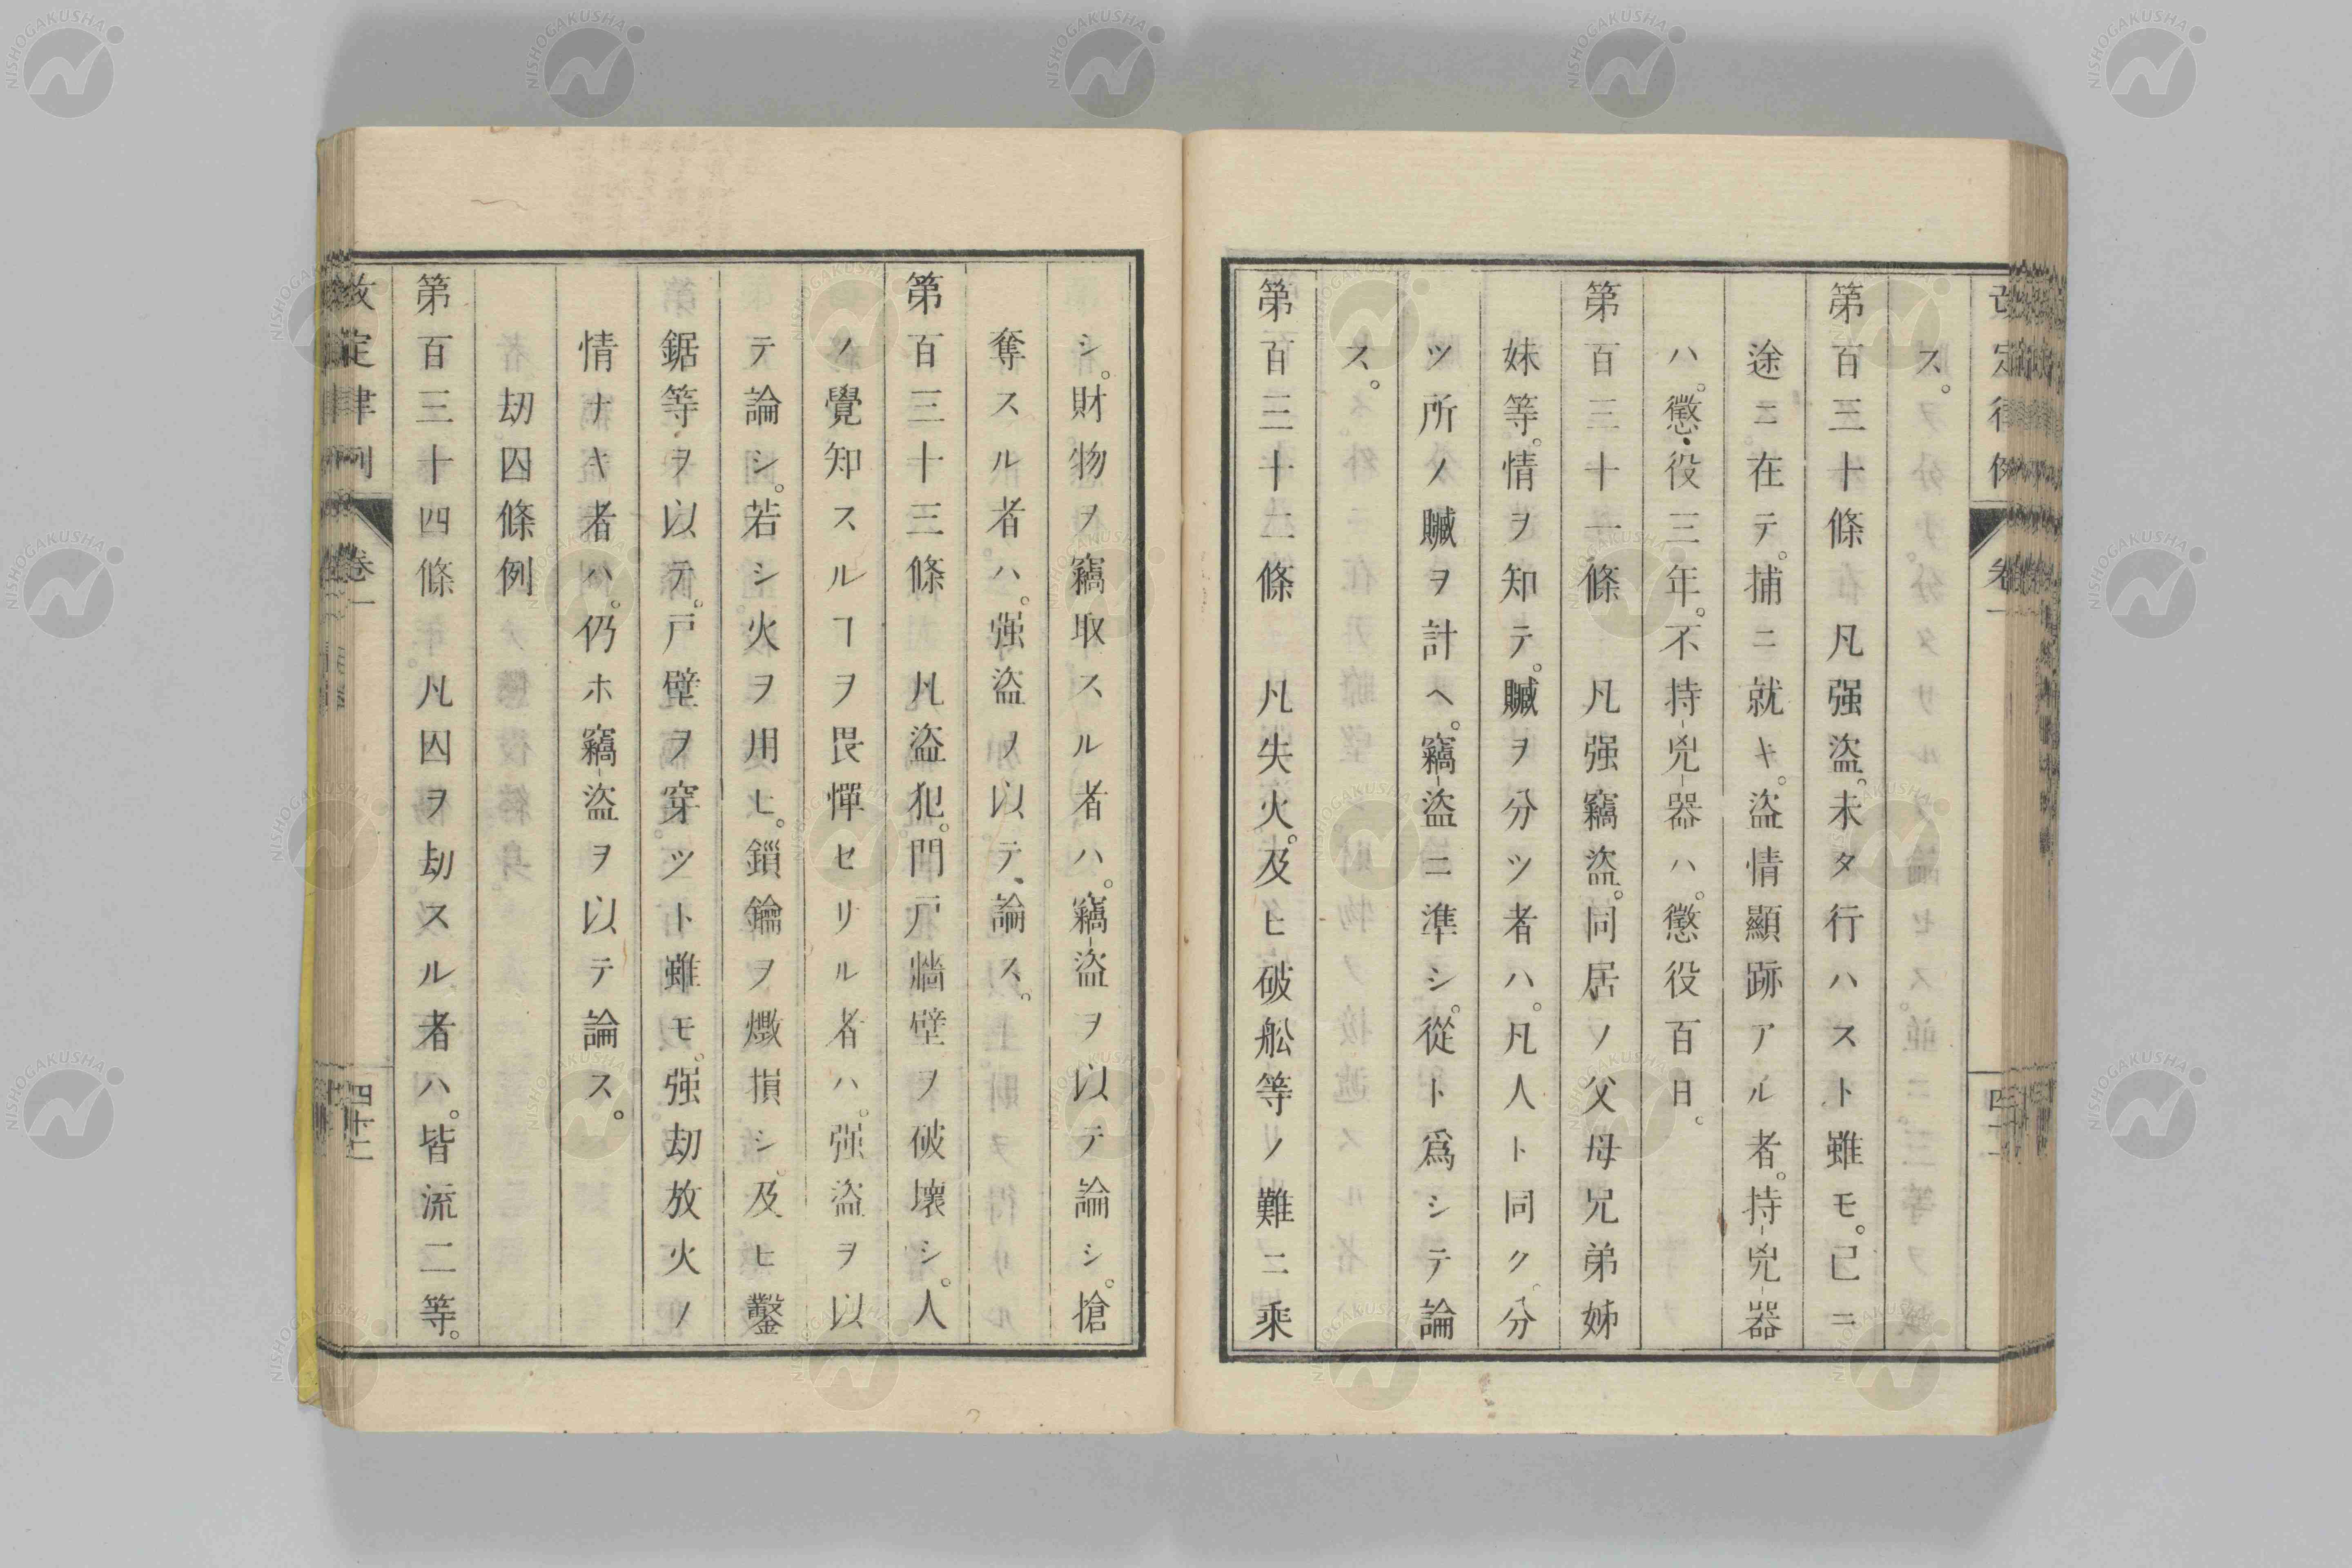 ス。
第百三十條　凡强盜。未タ行ハスト雖モ。已ニ
途ニ在テ。捕ニ就キ。盜情顯跡アル者。持兇器
ハ。懲役三年。不持兇器ハ。懲役百日。
第百三十一條　凡强竊盜。同居ノ父母兄弟姊
妹等。情ヲ知テ。贓ヲ分ツ者ハ。凡人ト同ク。分
ツ所ノ贓ヲ計ヘ。竊盜ニ準シ。從ト爲シテ論
ス。
第百三十二條　凡失火。及ヒ破舩等ノ難ニ乘
シ。財物ヲ竊取スル者ハ。竊盜ヲ以テ論シ。搶
奪スル者ハ。强盜ヲ以テ論ス。
第百三十三條　凡盜犯。門戸牆壁ヲ破壞シ。人
ノ覺知スルヿヲ畏憚セサル者ハ。强盜ヲ以
テ論シ。若シ火ヲ用ヒ。鎖鑰ヲ燬損シ。及ヒ鑿
鋸等ヲ以テ。戸壁ヲ穿ツト雖モ。强劫放火ノ
情ナキ者ハ。仍ホ竊盜ヲ以テ論ス。
劫囚條例
第百三十四條　凡囚ヲ劫スル者ハ。皆流二等。
改定律例
卷一
四十二
NISHOGAKUSHA